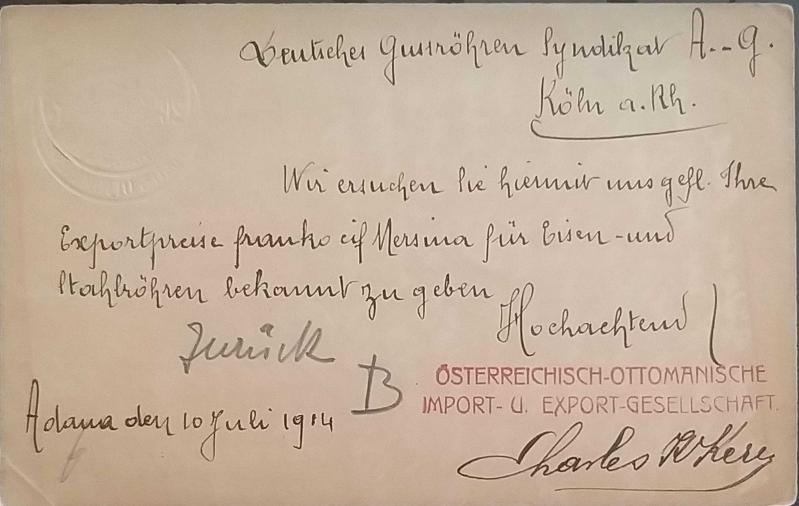 Deutsches Gussröhren Syndikat A.-G.
Köln a. Rh.
Wir ersuchen Sie hiermit uns gefl. Ihre
Exportpreise franko cif Mersina für Eisen- und
Stahlröhren bekannt zu geben
Hochachtend
Zurück
B
ÖSTERREICHISCH-OTTOMANISCHE
IMPORT- U. EXPORT-GESELLSCHAFT.
Adana den 10 Juli 1914
Charles